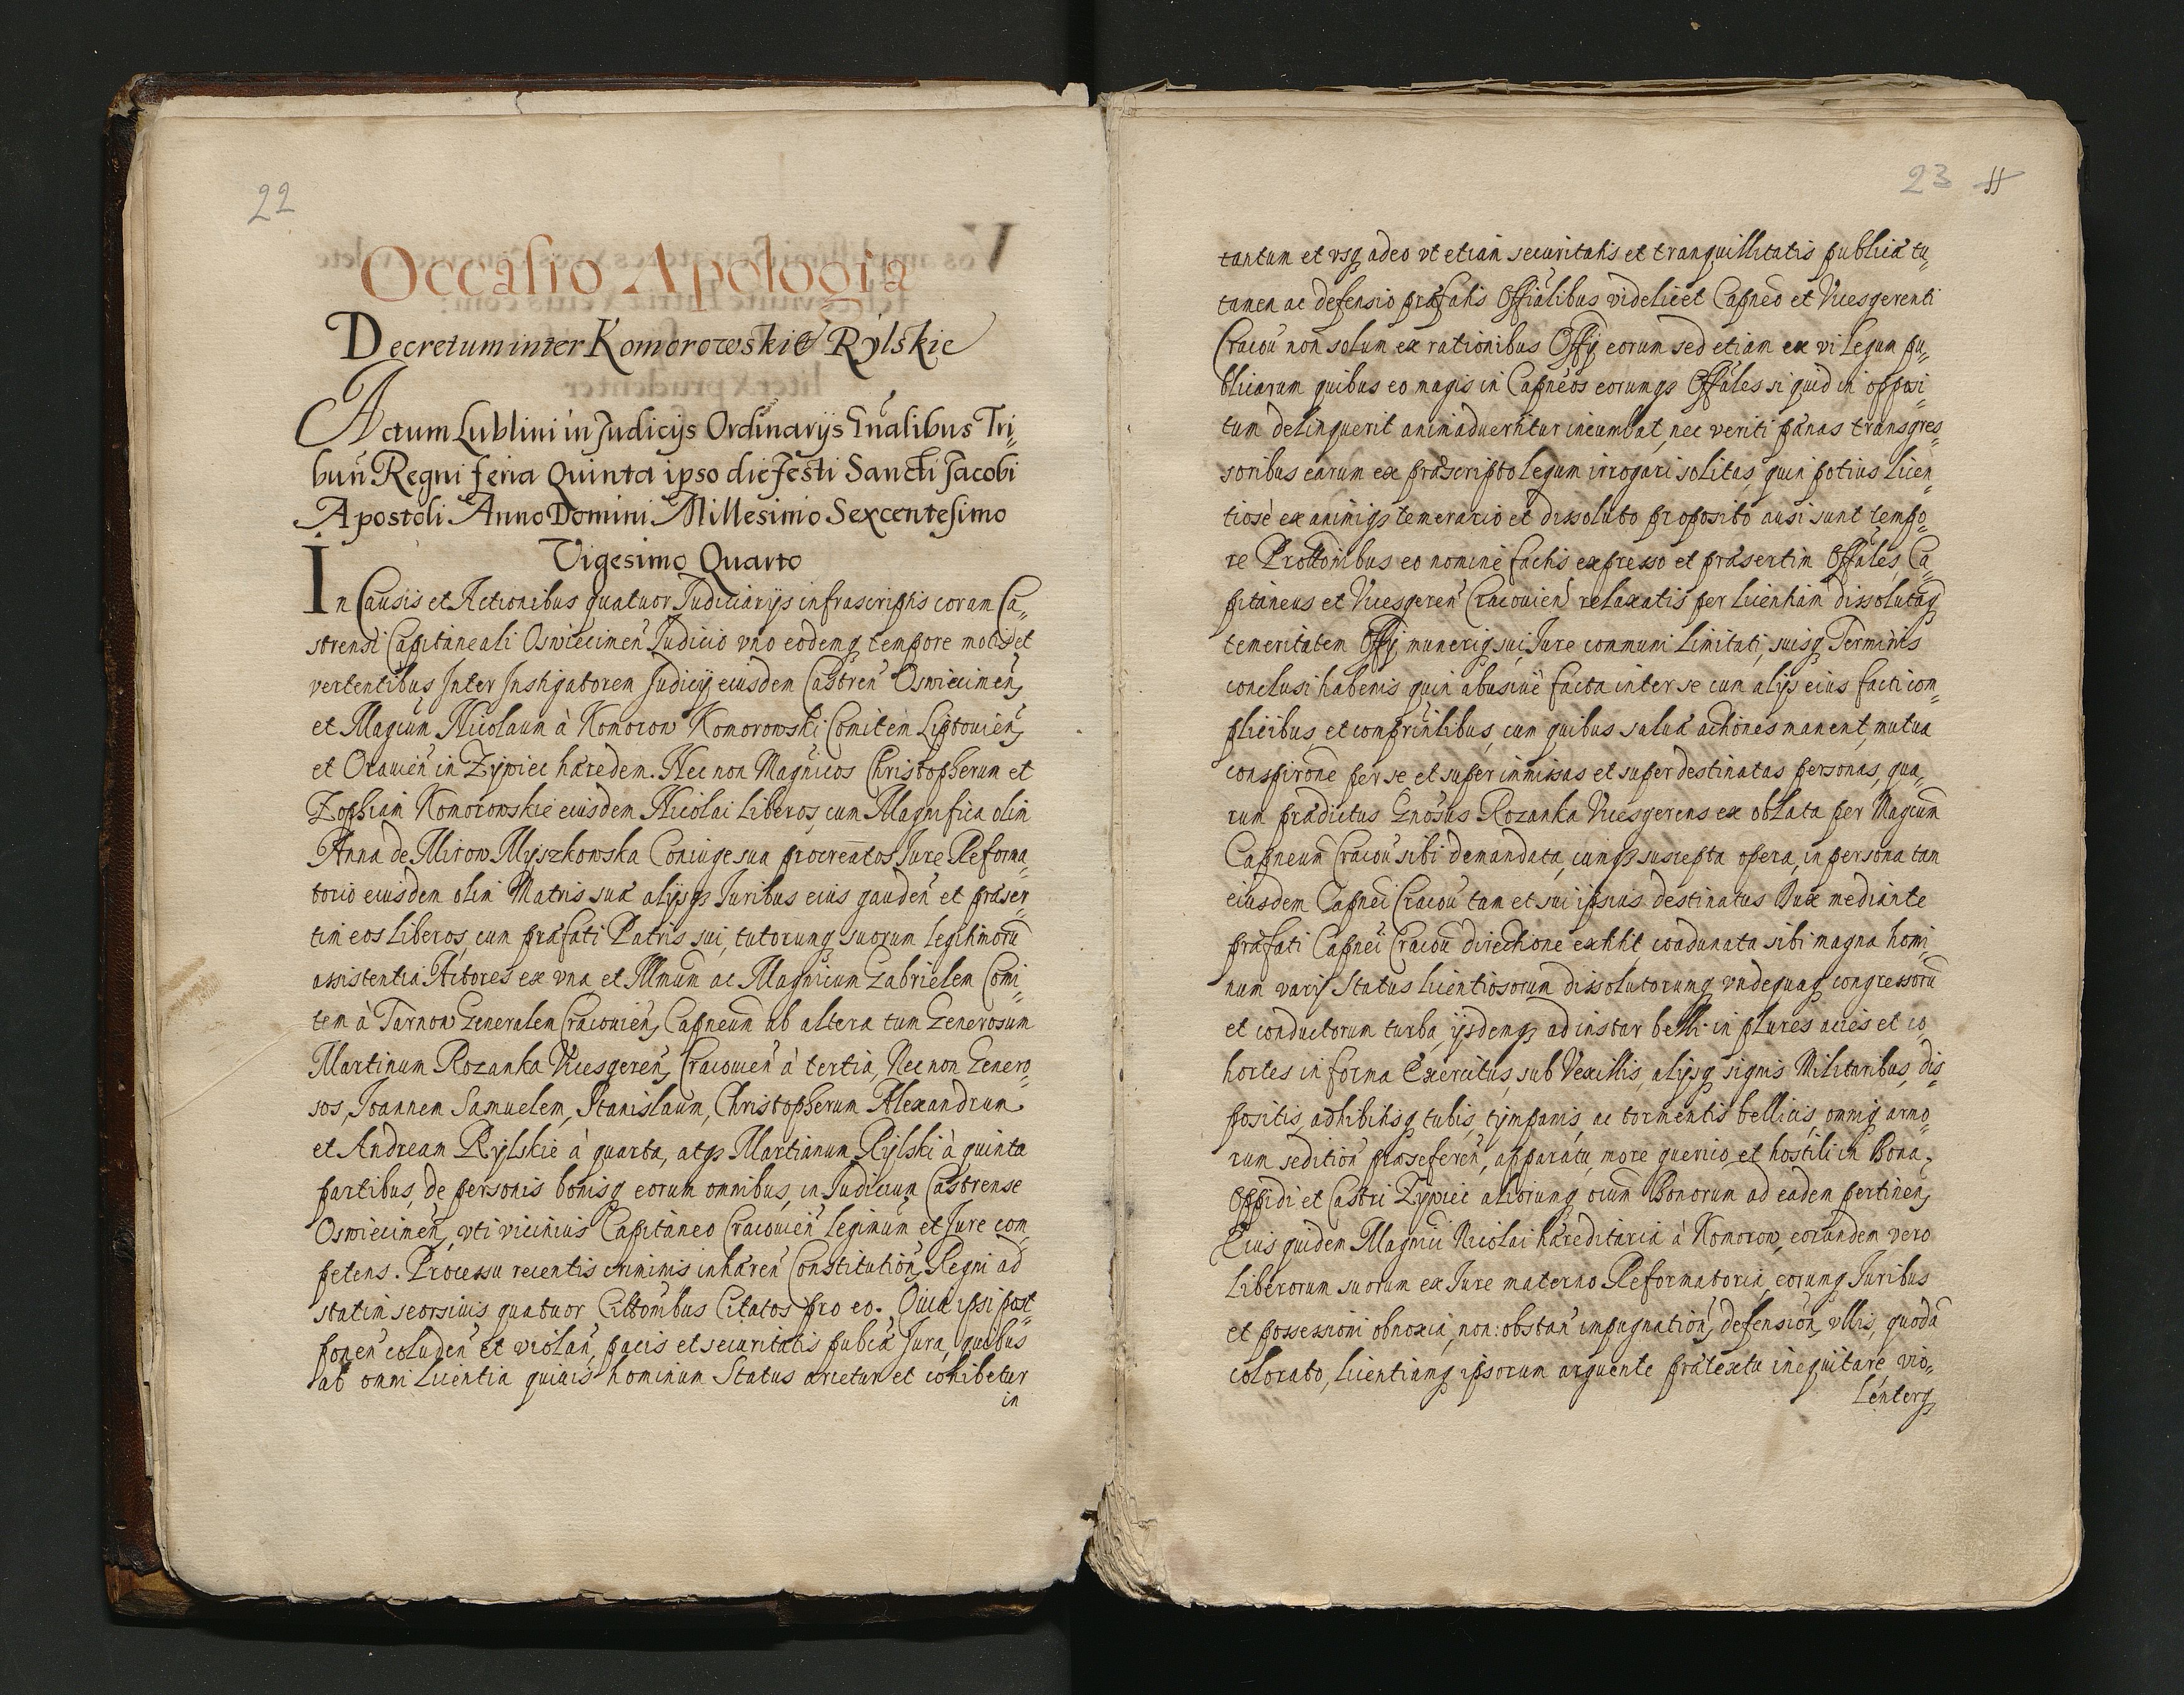 22
Occasio Apologiæ
Decretum inter Komorowski et Rylskie
Actum Lublini in Judicijs Ordinarijs Gnalibus Tri=
bun Regni feria Quinta ipso die Festi Sancti Jacobi
Apostoli Anno Domini Millesimo Sexcentesimo
Vigesimo Quarto
In Causis et Actionibus quatuor Judiciarijs infrascriptis coram Ca=
strensi Capitaneali Oswiecimen Judicio vno eodemq tempore motis et
vertentibus Inter Instigatorem Judicij eiusdem Castren Oswiecimen,
et Magcum Nicolaum à Komorow Komorowski Comitem Liptouien,
et Orauien in Zywiec hæredem. Nec non Magnicos Christopherum et
Zophiam Komorowskie eiusdem Nicolai Liberos, cum Magnifica olim
Anna de Mirow Myszkowska Coniuge sua procreatos Jure Reforma=
torio eiusdem olim Matris suæ alijsq Juribus eius gauden et præser=
tim eos Liberos, cum præfati Patris sui, tutorumq suorum legitimorū
assistentia Actores ex vna et Illmum ac Magnicum Gabrielem Comi=
tem à Tarnow Generalem Cracouien, Capneum ab altera tum Generosum
Martinum Rozanka Vicesgeren, Cracouien à tertia, Nec non Genero=
sos, Joannem Samuelem, Stanislaum, Christopherum Alexandrum
et Andream Rylskie à quarta, atqs Martianum Rylski à quinta
partibus, de personis bonisq eorum omnibus, in Judicium Castrense
Oswiecimen, vti vicinius Capitaneo Cracouien legimum et Jure com=
petens. Processu recentis criminis inhæren Constitution, Regni ad
statim seorsiuis quatuor Cittonibus Citatos pro eo. Quia ipsi post=
ponen eluden et violan, pacis et securitatis pubcæ Jura, quibus
ab omni licentia quiuis hominum Status arcetur et cohibetur
in
23
tantum et vsq adeo vt etiam securitatis et tranquillitatis publicæ tu=
tamen ac defensio præfatis Offialibus videlicet Capneo et Vicesgerenti
Cracou non solum ex rationibus Offij eorum sed etiam ex vi Legum pu=
blicarum quibus eo magis in Capneos eorumqs Offales si quid in opposi=
tum delinquerit animaduertitur incumbat, nec veriti pænas transgres=
soribus earum ex præscripto legum irrogari solitas, quin potius licen=
tiosè ex animiqs temerario et dissoluto proposito ausi sunt tempo=
re Prottonibus eo nomine factis expresso et præsertim Offales, Ca=
pitaneus et Vicesgeren Cracouien relaxatis per licentiam dissolutāq
temeritatem Offij munerisq sui Jure communi Limitati, suisq Terminis
conclusi habenis quin abusiuè facta inter se cum alijs eius facti com=
plicibus, et comprinlibus, cum quibus saluæ actiones manent, mutua
conspirone per se et super immissas et super destinatas personas, qua=
rum prædictus Gnosus Rozanka Vicesgerens ex oblata per Magcum
Capneum Cracou sibi demandata, eumqs suscepta opera, in persona tam
eiusdem Capnei Cracou tam et sui ipsius destinatus Dux mediante
præfati Capnei Cracou directione extitit, coadunata sibi magna homi=
num varij Status licentiosorum dissolutorumq vndequaq congressorū
et conductorum turba, ijsdemqs ad instar belli in plures acies et co=
hortes in forma Exercitus, sub Vexillis, alijsq signis Militaribus, dis=
positis, adhibitisq tubis, tympanis, ac tormentis bellicis, omniq armo=
rum sedition præseferen, apparatu, more guerrico et hostili in Bona,
Oppidi et Castri Zywiec aliorumq oium Bonorum ad eadem pertinen,
Eius quidem Magnici Nicolai hæreditaria à Komorow, eorundem vero
liberorum suorum ex Jure materno Reformatoria, eorumq Juribus
et possessioni obnoxia, non: obstan impugnation, defension, vllis, quodā
colorato, licentiamq ipsorum arguente prætextu inequitare, vio=
lenterq